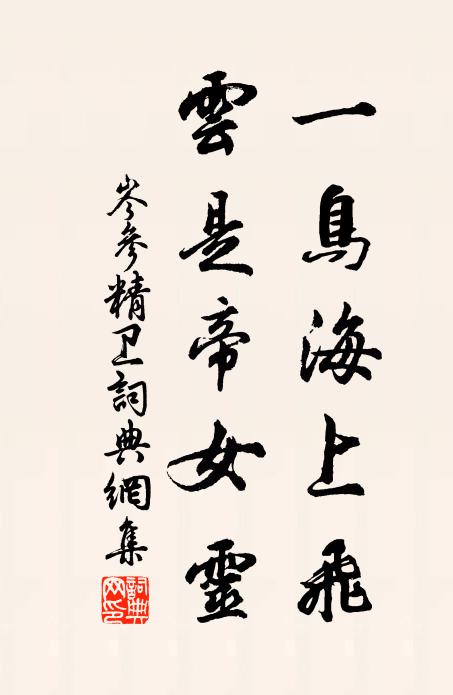 一鳥海上飛
雲是帝女靈
岑參精卫詞典網集
詞典網印